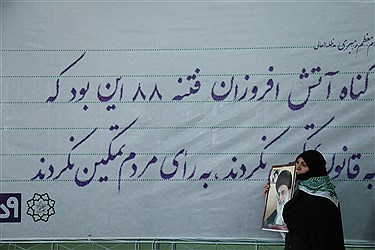 معظم رهبری مدظله‌العالی
گناه آتش افروزان فتنه ۸۸ این بود که
به قانون تمکین نکردند، به رای مردم تمکین نکردند
۹د